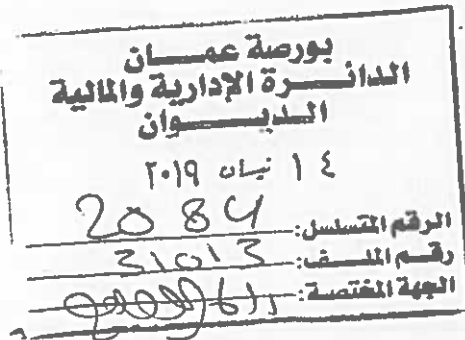 بورصة عمـــان
الدائـــرة الإدارية والمالية
الديـــوان
١٤ نيسان ٢٠١٩
الرقم المتسلسل: 2084
رقم الملـــف: 31013
الجهة المختصة: